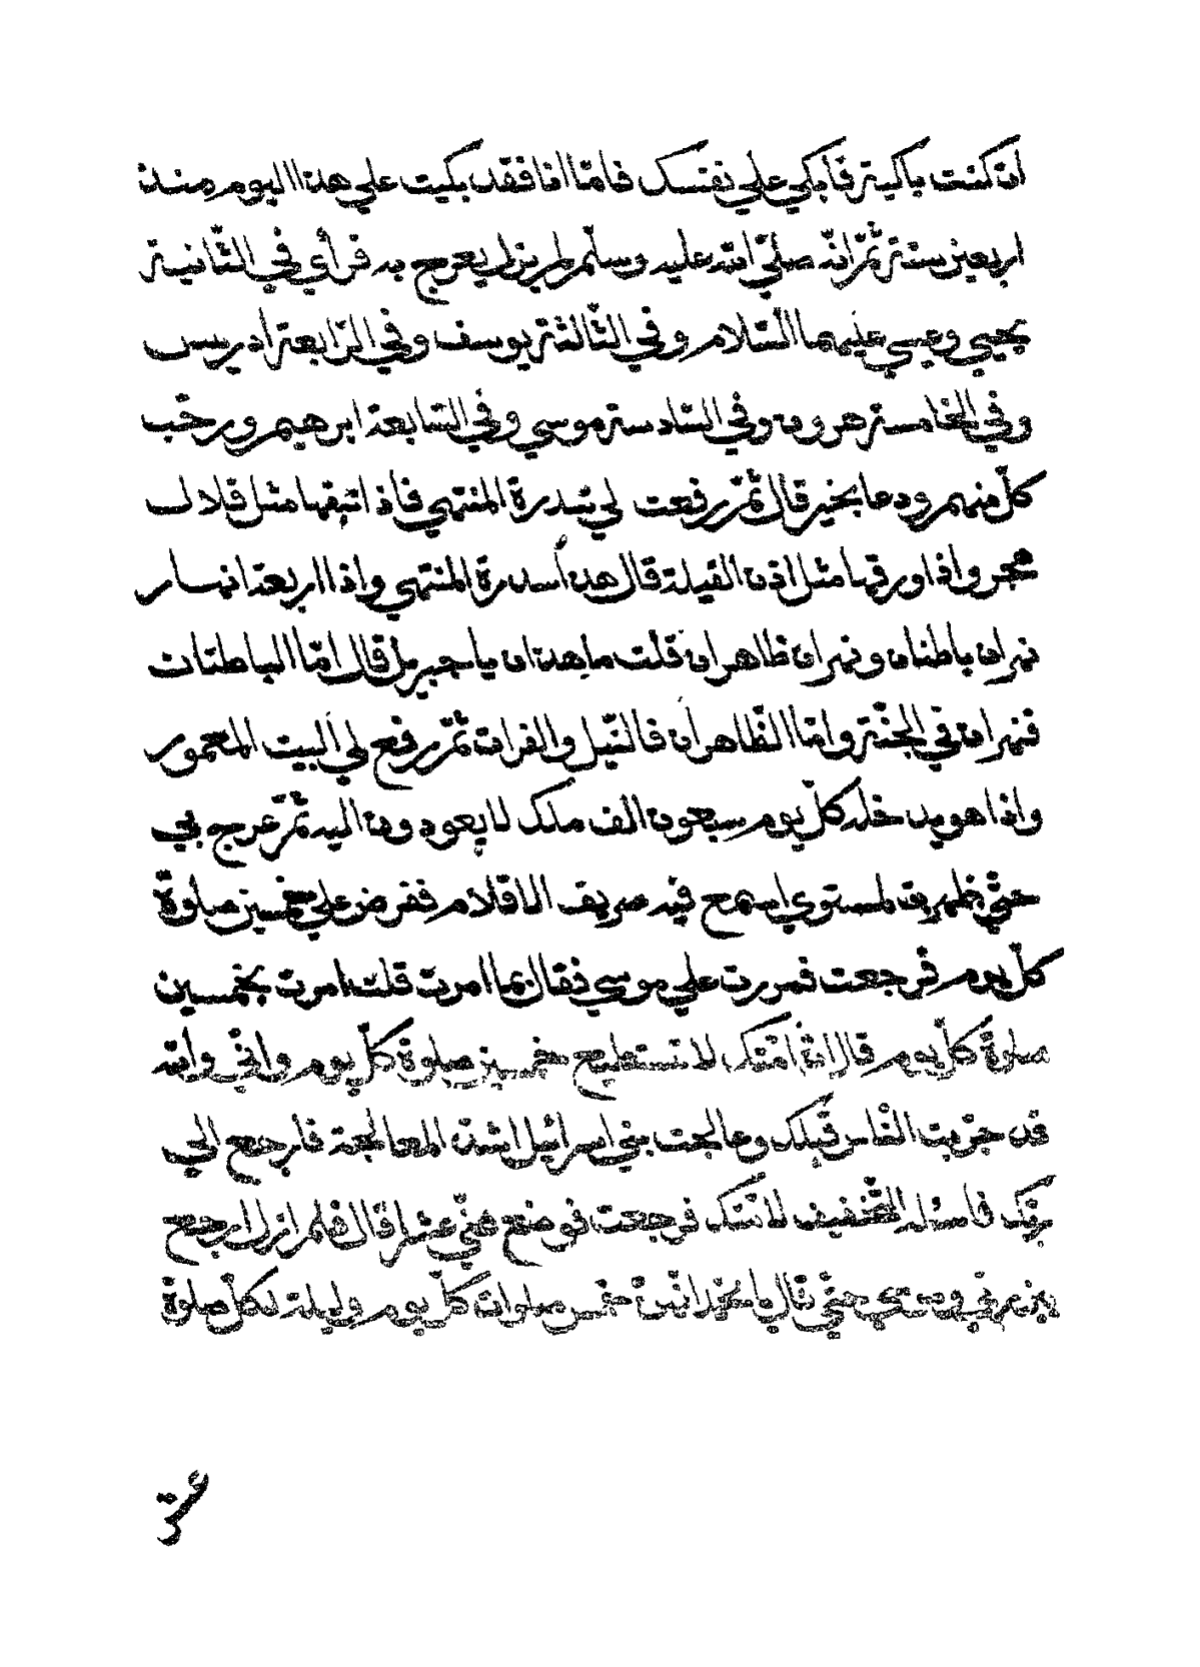 ان كنت باكية فابكي علي نفسك فامّا انا فقد بكيت علي هذا اليوم منذ
اربعين سنة ثمّ انّه صلّي الله عليه وسلّم لم يزل يعرج به فرأي في الثّانية
يحيي وعيسي عليهما السّلام وفي الثّالثة يوسف وفي الرّابعة ادريس
وفي الخامسة هرون وفي السّادسة موسي وفي السّابعة ابرهيم ورحّب
كلّ منهم ودعا بخير قال ثمّ رفعت لي سدرة المنتهي فاذا نبقها مثل قلال
هجر واذا ورقها مثل اذن الفيلة قال هذا سدرة المنتهي واذا اربعة انهار
نهران باطنان ونهران ظاهران قلت ما هذان يا جبريل قال امّا الباطنان
فنهران في الجنّة وامّا الظّاهران فالنّيل والفرات ثمّ رفع لي البيت المعمور
واذا هو يدخله كلّ يوم سبعون الف ملك لا يعودون اليه ثمّ عرج بي
حتّي ظهرت لمستوي اسمع فيه صريف الاقلام ففرض علي خمسين صلوة
كلّ يوم فرجعت فمررت علي موسي فقال بما امرت قلت امرت بخمسين
صلوة كلّ يوم قال انّ امّتك لا تستطيع خمسين صلوة كلّ يوم وانّي والله
قد جرّبت النّاس قبلك وعالجت بني اسرائيل اشدّ المعالجة فارجع الي
ربّك فاسئله التّخفيف لامّتك فرجعت فوضع عنّي عشرا قال فلم ازل ارجع
بين ربّي وموسي حتّي قال يا محمّد انّهنّ خمس صلوات كلّ يوم وليلة لكلّ صلوة